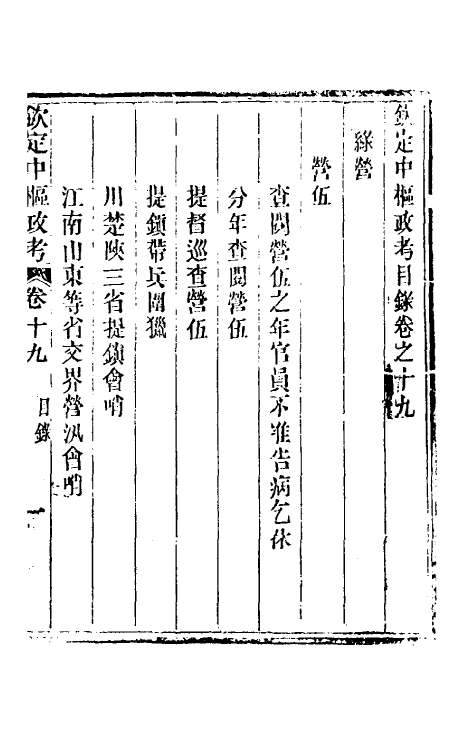 欽定中樞政考目錄卷之十九
綠營
營伍
查閱營伍之年官員不准告病乞休
分年查閱營伍
提督巡查營伍
提鎮帶兵圍獵
川楚陝三省提鎮會哨
江南山東等省交界營汛會哨
欽定中樞政考 卷十九 目錄 一